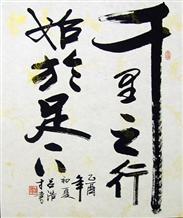 千里之行
始於足下
乙酉年初夏